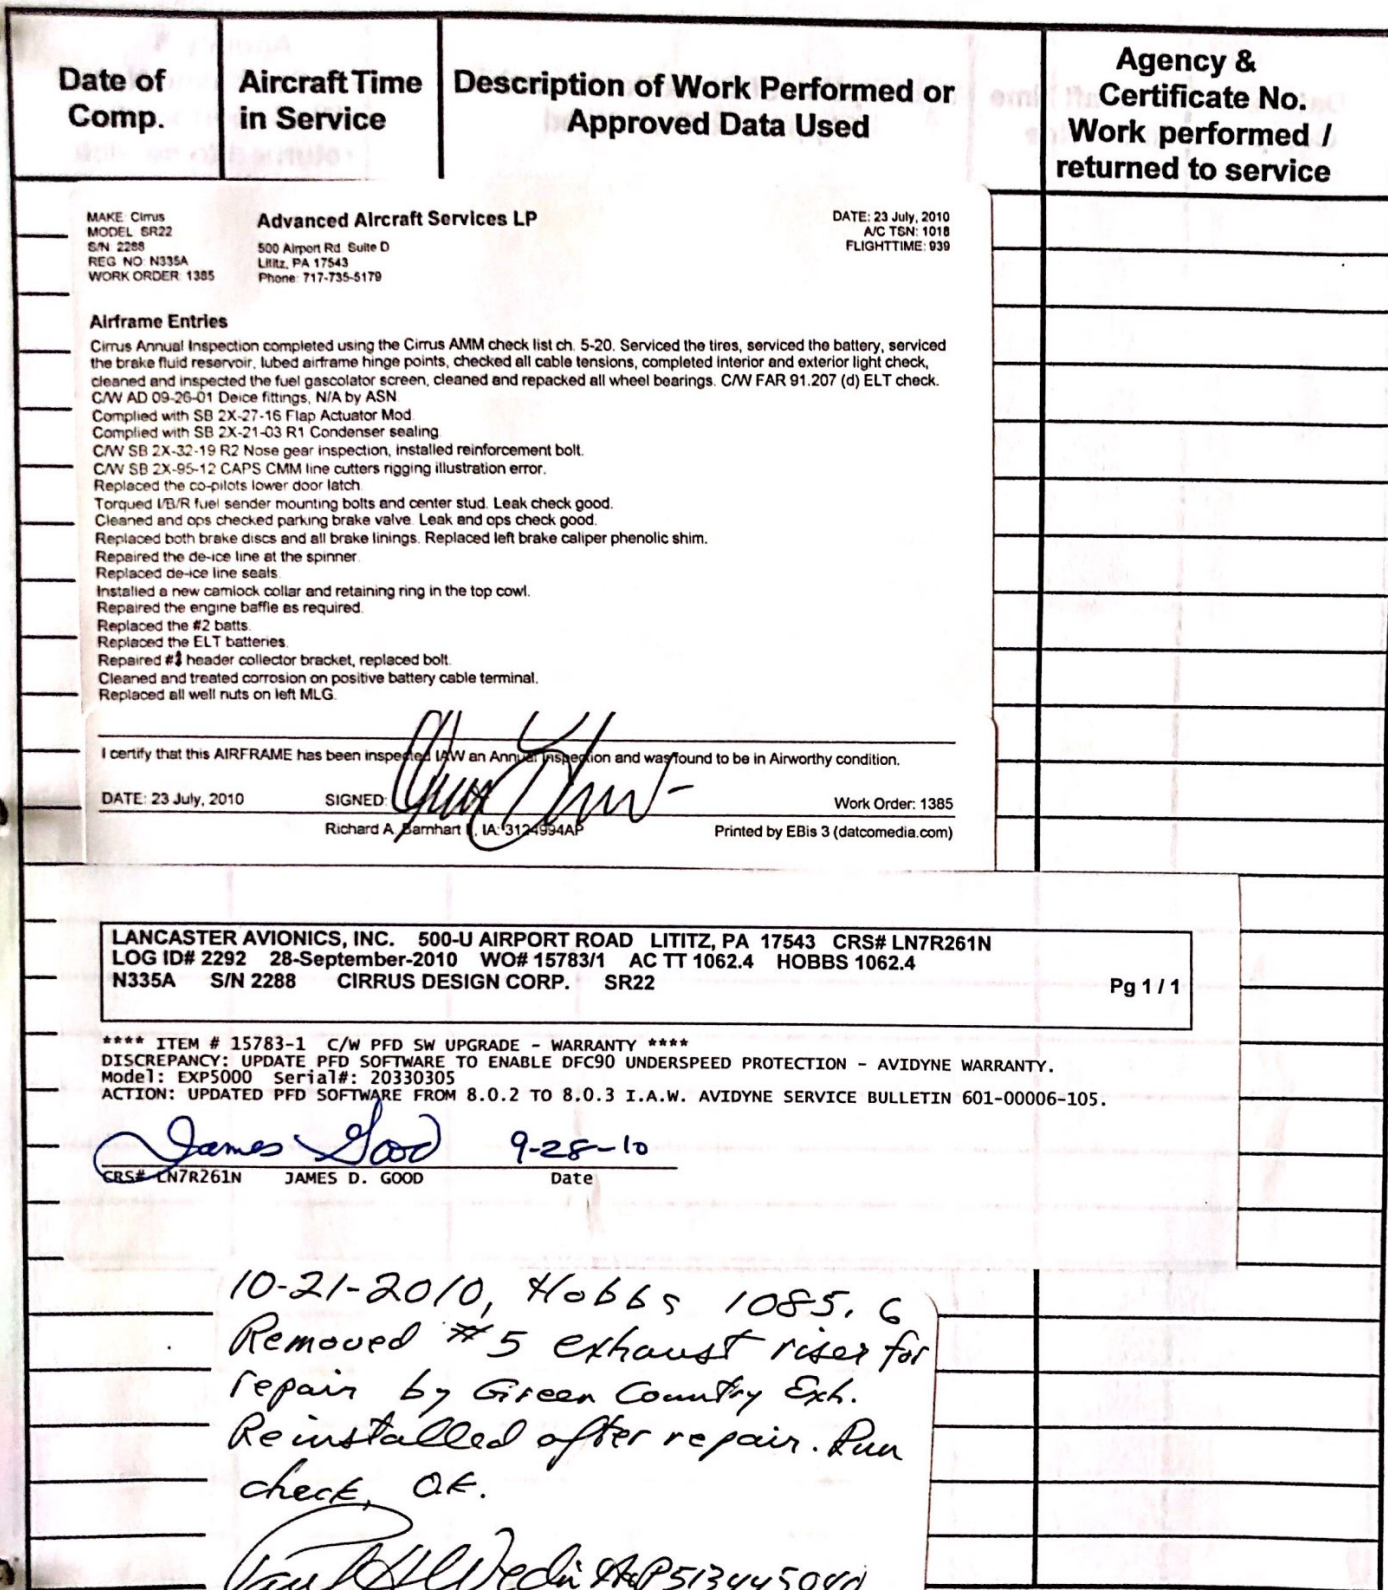 Date of Comp.
Aircraft Time in Service
Description of Work Performed or Approved Data Used
Agency & Certificate No. Work performed / returned to service
MAKE: Cirrus
MODEL: SR22
S/N: 2288
REG. NO: N335A
WORK ORDER: 1385
Advanced Aircraft Services LP
500 Airport Rd. Suite D
Lititz, PA 17543
Phone: 717-735-5179
DATE: 23 July, 2010
A/C TSN: 1018
FLIGHTTIME: 939
Airframe Entries
Cirrus Annual Inspection completed using the Cirrus AMM check list ch. 5-20. Serviced the tires, serviced the battery, serviced
the brake fluid reservoir, lubed airframe hinge points, checked all cable tensions, completed interior and exterior light check,
cleaned and inspected the fuel gascolator screen, cleaned and repacked all wheel bearings. C/W FAR 91.207 (d) ELT check.
C/W AD 09-26-01 Deice fittings, N/A by ASN.
Complied with SB 2X-27-16 Flap Actuator Mod.
Complied with SB 2X-21-03 R1 Condenser sealing.
C/W SB 2X-32-19 R2 Nose gear inspection, installed reinforcement bolt.
C/W SB 2X-95-12 CAPS CMM line cutters rigging illustration error.
Replaced the co-pilots lower door latch.
Torqued I/B/R fuel sender mounting bolts and center stud. Leak check good.
Cleaned and ops checked parking brake valve. Leak and ops check good.
Replaced both brake discs and all brake linings. Replaced left brake caliper phenolic shim.
Repaired the de-ice line at the spinner.
Replaced de-ice line seals.
Installed a new camlock collar and retaining ring in the top cowl.
Repaired the engine baffle as required.
Replaced the #2 batts.
Replaced the ELT batteries.
Repaired header collector bracket, replaced bolt.
Cleaned and treated corrosion on positive battery cable terminal.
Replaced all well nuts on left MLG.
I certify that this AIRFRAME has been inspected IAW an Annual Inspection and was found to be in Airworthy condition.
DATE: 23 July, 2010 SIGNED: Work Order: 1385
Richard A. Barnhart IA: 3124994AP Printed by EBis 3 (datcomedia.com)
LANCASTER AVIONICS, INC. 500-U AIRPORT ROAD LITITZ, PA 17543 CRS# LN7R261N
LOG ID# 2292 28-September-2010 WO# 15783/1 AC TT 1062.4 HOBBS 1062.4
N335A S/N 2288 CIRRUS DESIGN CORP. SR22 Pg 1 / 1
**** ITEM # 15783-1 C/W PFD SW UPGRADE - WARRANTY ****
DISCREPANCY: UPDATE PFD SOFTWARE TO ENABLE DFC90 UNDERSPEED PROTECTION - AVIDYNE WARRANTY.
Model: EXP5000 Serial#: 20330305
ACTION: UPDATED PFD SOFTWARE FROM 8.0.2 TO 8.0.3 I.A.W. AVIDYNE SERVICE BULLETIN 601-00006-105.
James Good 9-28-10
CRS# LN7R261N JAMES D. GOOD Date
10-21-2010, Hobbs 1085.6
Removed #5 exhaust riser for
repair by Green Country Exh.
Reinstalled after repair. Run
check, OK.